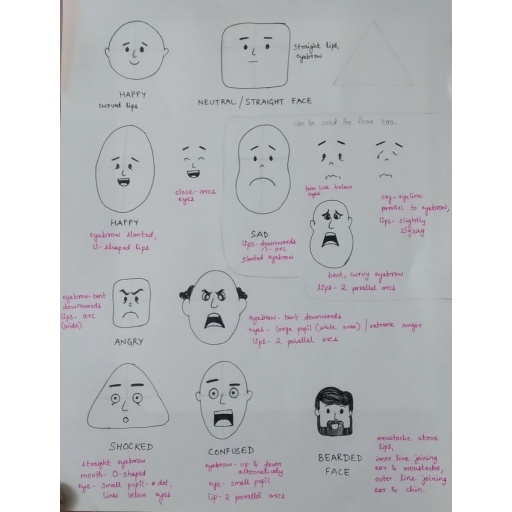 HAPPY
curved lips
NEUTRAL/STRAIGHT FACE
straight lips,
eyebrow
can be used for fear too.
HAPPY
eyebrow slanted,
U-shaped lips
close-arcs
eyes
SAD
lips-downwards
n-arc
slanted eyebrow
tear line below
eyes
cry-eyeline
parallel to eyebrow,
lips-slightly
zigzag
bent, curvy eyebrow
lips-2 parallel arcs
eyebrow-bent
downwards
lips-arc
(wide)
ANGRY
eyebrow-bent downwards
eyes-large pupil (white area) / extreme anger
lips-2 parallel arcs
SHOCKED
straight eyebrow
mouth-O-shaped
eye-small pupil-dot,
lines below eyes
CONFUSED
eyebrow-up & down
alternatively
eye-small pupil
lip-2 parallel arcs
BEARDED
FACE
moustache above
lips,
inner line joining
ear & moustache,
outer line joining
ear & chin.